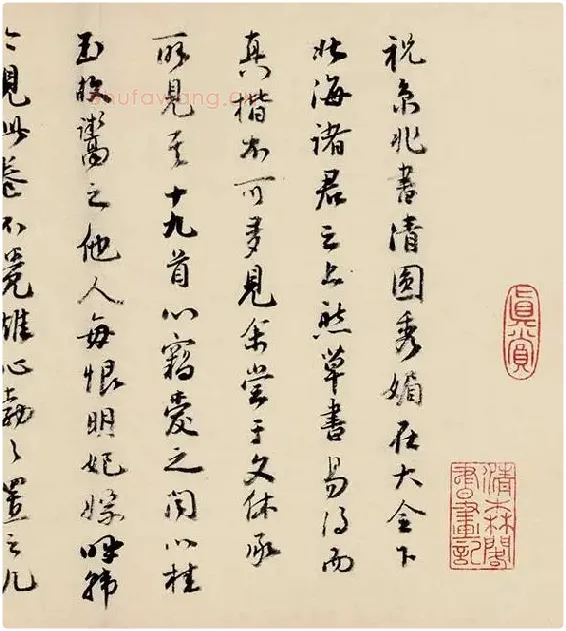 眞賞
清森閣
書畫記
祝京兆書清圓秀媚在大令下
北海諸君之上然草書易得而
真楷不可多見余嘗于文休承
所見其十九首心竊愛之聞以桂
玉故鬻之他人每恨明妃嫁呼韓
今見此卷不覺雄心勃々置之几
shufawang.cn